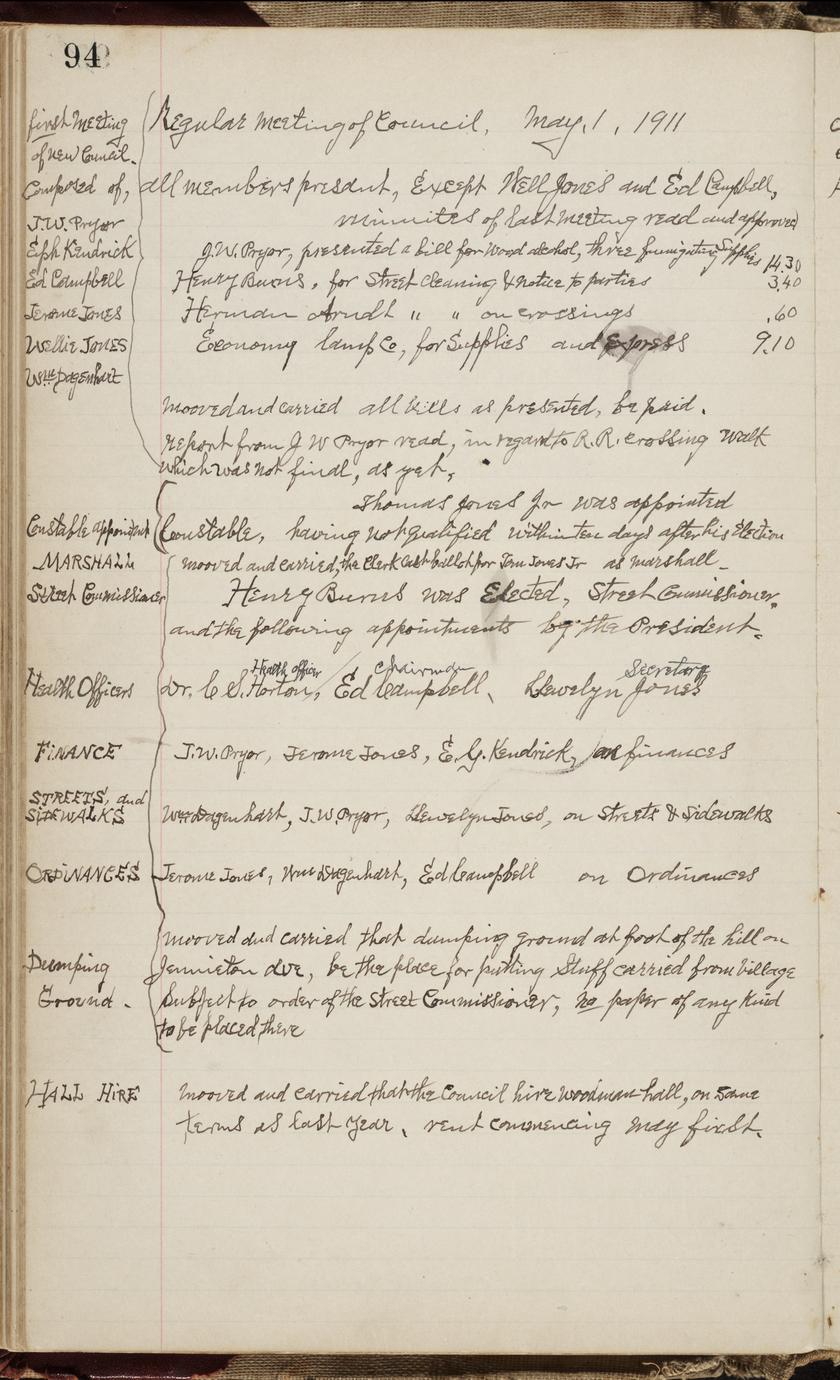 94
first Meeting
of new Council.
Composed of,
J.W. Pryor
Eph Kendrick
Ed Campbell
Jerome Jones
Wellie Jones
Wm Dagenhart
Regular Meeting of Council, May, 1, 1911
all members present, Except Well Jones and Ed Campbell,
minnites of last meeting read and approved
J.W. Pryor, presented a bill for wood alcohol, three fumigating Supplies 14.30
Henry Burns, for Street cleaning & notice to parties 3.40
Herman Arndt " " on crossings .60
Economy lamp Co, for Supplies and Express 9.10
mooved and carried all bills as presented, be paid.
report from J W Pryor read, in regard to R.R. crossing walk
which was not final, as yet,
Thomas Jones Jr was appointed
Constable appointed Constable, having not qualified within ten days after his Election
MARSHALL mooved and carried, the Clerk cast ballot for Tom Jones Jr as marshall
Street Commissioner Henry Burns was Elected, Street Commissioner,
and the following appointments by the President.
Health officer Chairman Secretary
Health Officers Dr. C S. Horton, Ed Campbell, Llewelyn Jones
FINANCE J.W. Pryor, Jerome Jones, E.G. Kendrick, on finances
STREETS, and
SIDEWALKS Wm Dagenhart, J.W. Pryor, Llewelyn Jones, on Streets & Sidewalks
ORDINANCES Jerome Jones, Wm Dagenhart, Ed Campbell on Ordinances
mooved and carried that dumping ground at foot of the hill on
Dumping ave, be the place for putting Stuff carried from Village
Ground. Subject to order of the Street Commissioner, no paper of any kind
to be placed, there
HALL HIRE mooved and carried that the Council hire woodman hall, on same
terms as last year, rent commencing may first.